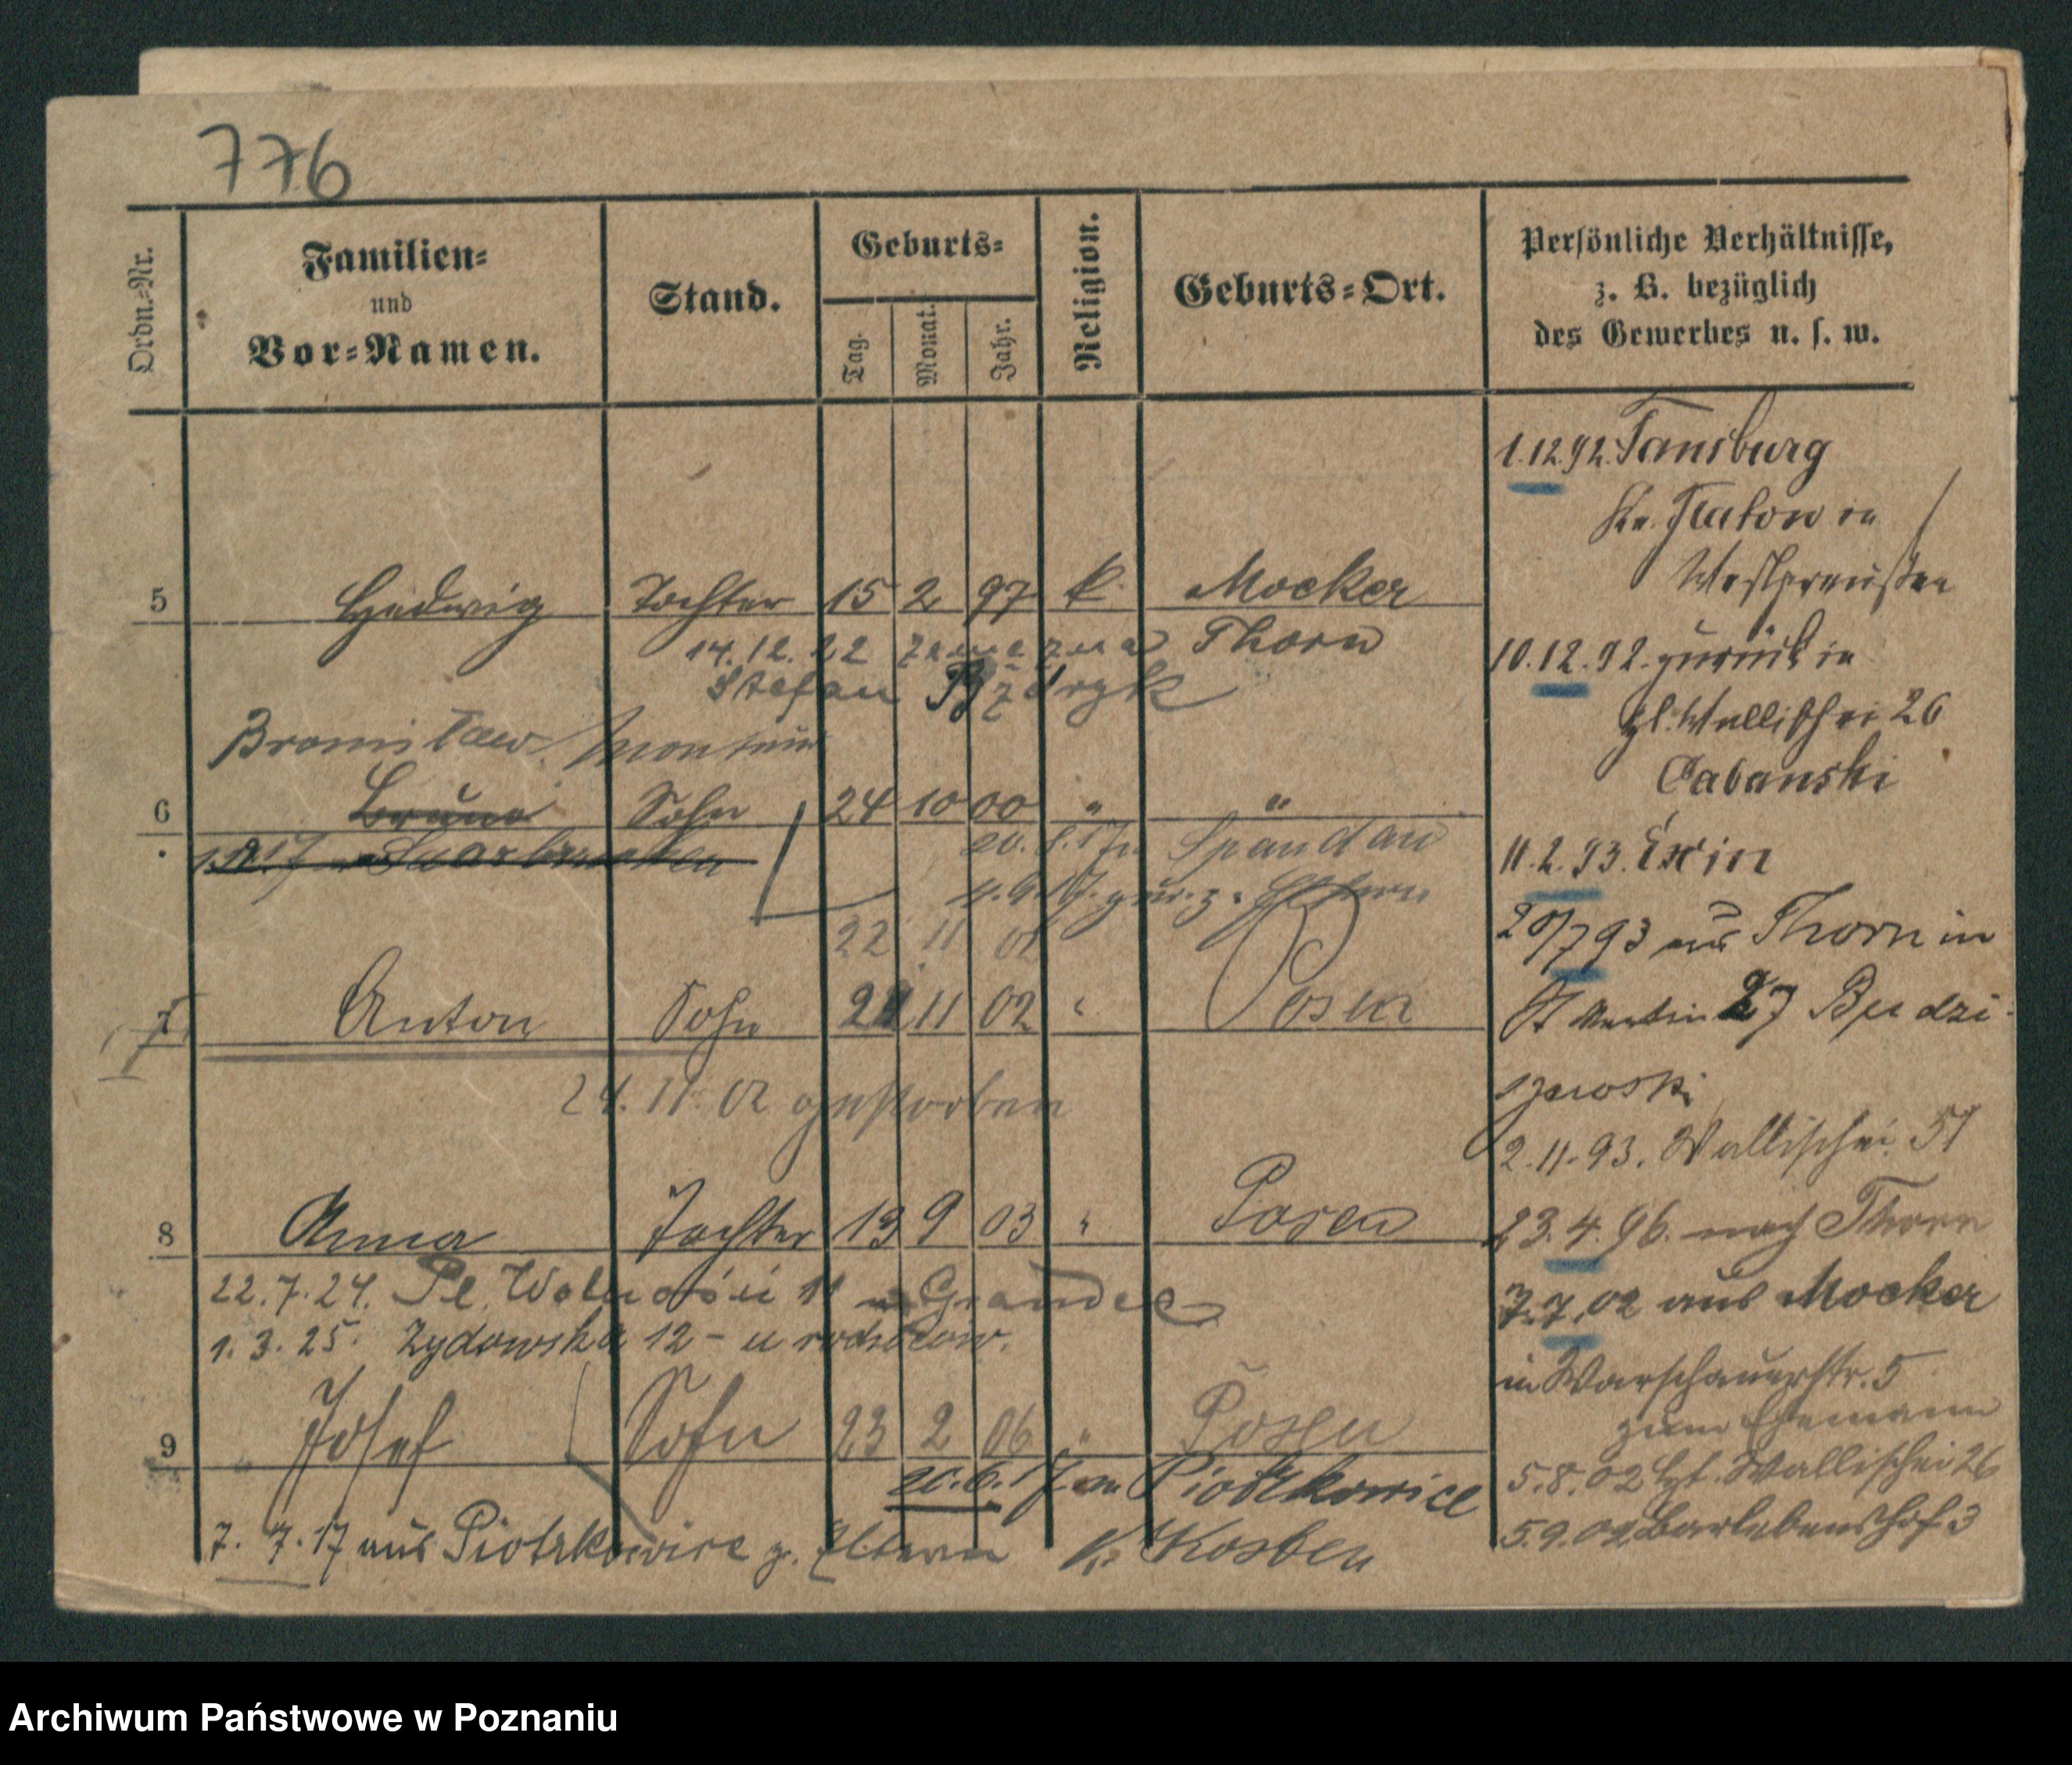 776
Ordn.-Nr.
Familien-
und
Vor-Namen.
Stand.
Geburts-
Tag.
Monat.
Jahr.
Religion.
Geburts-Ort.
Persönliche Verhältnisse,
z. B. bezüglich
des Gewerbes u. s. w.
5 Hedwig Tochter 15 2 97 k. Mocker
Thorn
14.12.22 zamężna
Stefan
Bronisław. Monteur
6 Bruno Sohn 24 10 00 " "
Saarbrücken
20. 8. 17 n Spandau
4. 9. 17. zur. z. Eltern
22 11 02
7 Anton Sohn 11 02 " Posen
24. 11. 02 gestorben
8 Anna Tochter 13 9 03 " Posen
22.7.24. Pl. Wolności 11
1. 3. 25. Żydowska 12 - u rodziców.
9 Josef Sohn 23 2 06 " Posen
20. 6. 17 n Piotrkowice
7. 7. 17 aus Piotrkowice z. Eltern Kr. Kosten
1.12.92.
Kr. Flatow in
Westpreußen
10.12.92. zurück in
Wallischei 26
Cabanski
11.2.93. Exin
20/7 93 aus Thorn in
St Martin 27 Budzi-
szewski
2.11.93. Wallischei 51
23.4.96. nach Thorn
7.7.02 aus Mocker
in Warschauerstr. 5
zum Ehemann
5.8.02 Wallischei 26
5.9.02 Barlebenshof 3
Archiwum Państwowe w Poznaniu